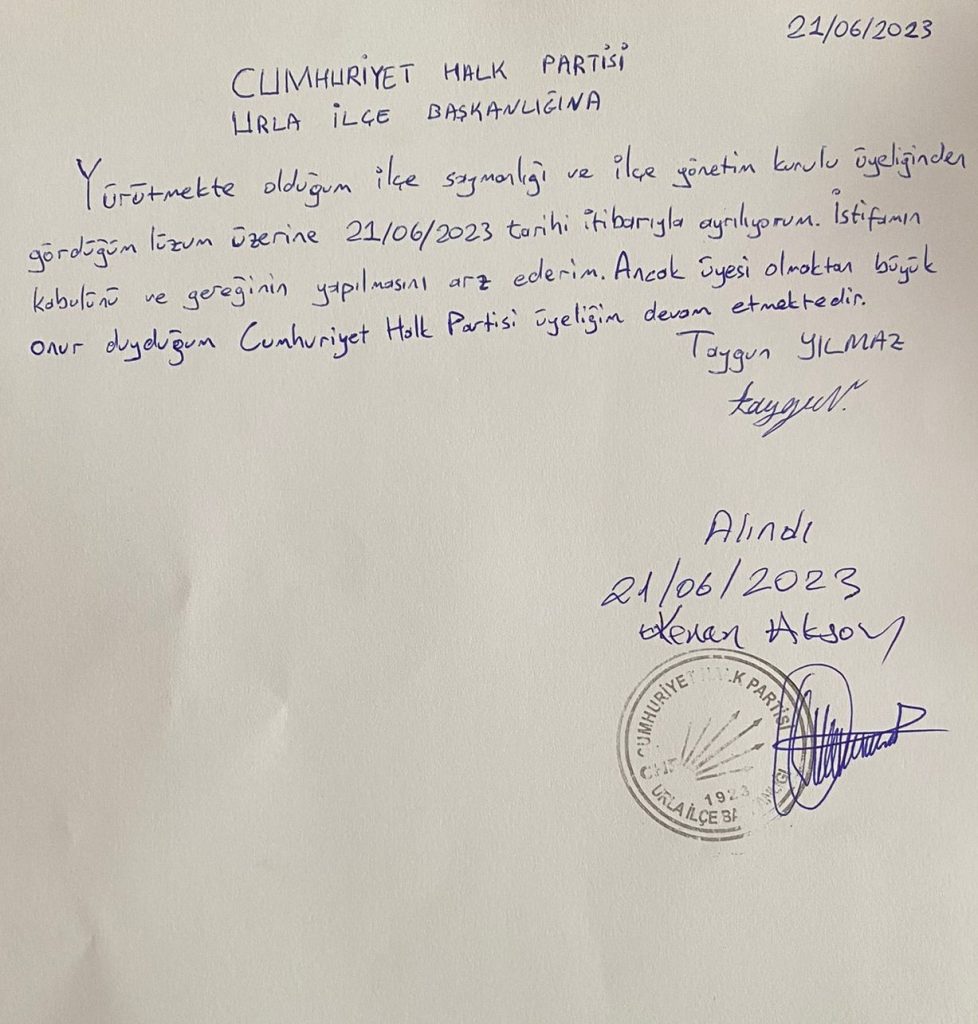 21/06/2023
CUMHURİYET HALK PARTİSİ
URLA İLÇE BAŞKANLIĞINA
Yürütmekte olduğum ilçe saymanlığı ve ilçe yönetim kurulu üyeliğinden
gördüğüm lüzum üzerine 21/06/2023 tarihi itibarıyla ayrılıyorum. İstifamın
kabulünü ve gereğinin yapılmasını arz ederim. Ancak üyesi olmaktan büyük
onur duyduğum Cumhuriyet Halk Partisi üyeliğim devam etmektedir.
Taygun YILMAZ
taygun.
Alındı
21/06/2023
Kenan Aksoy
CUMHURİYET HALK PARTİSİ
CHP
1923
URLA İLÇE